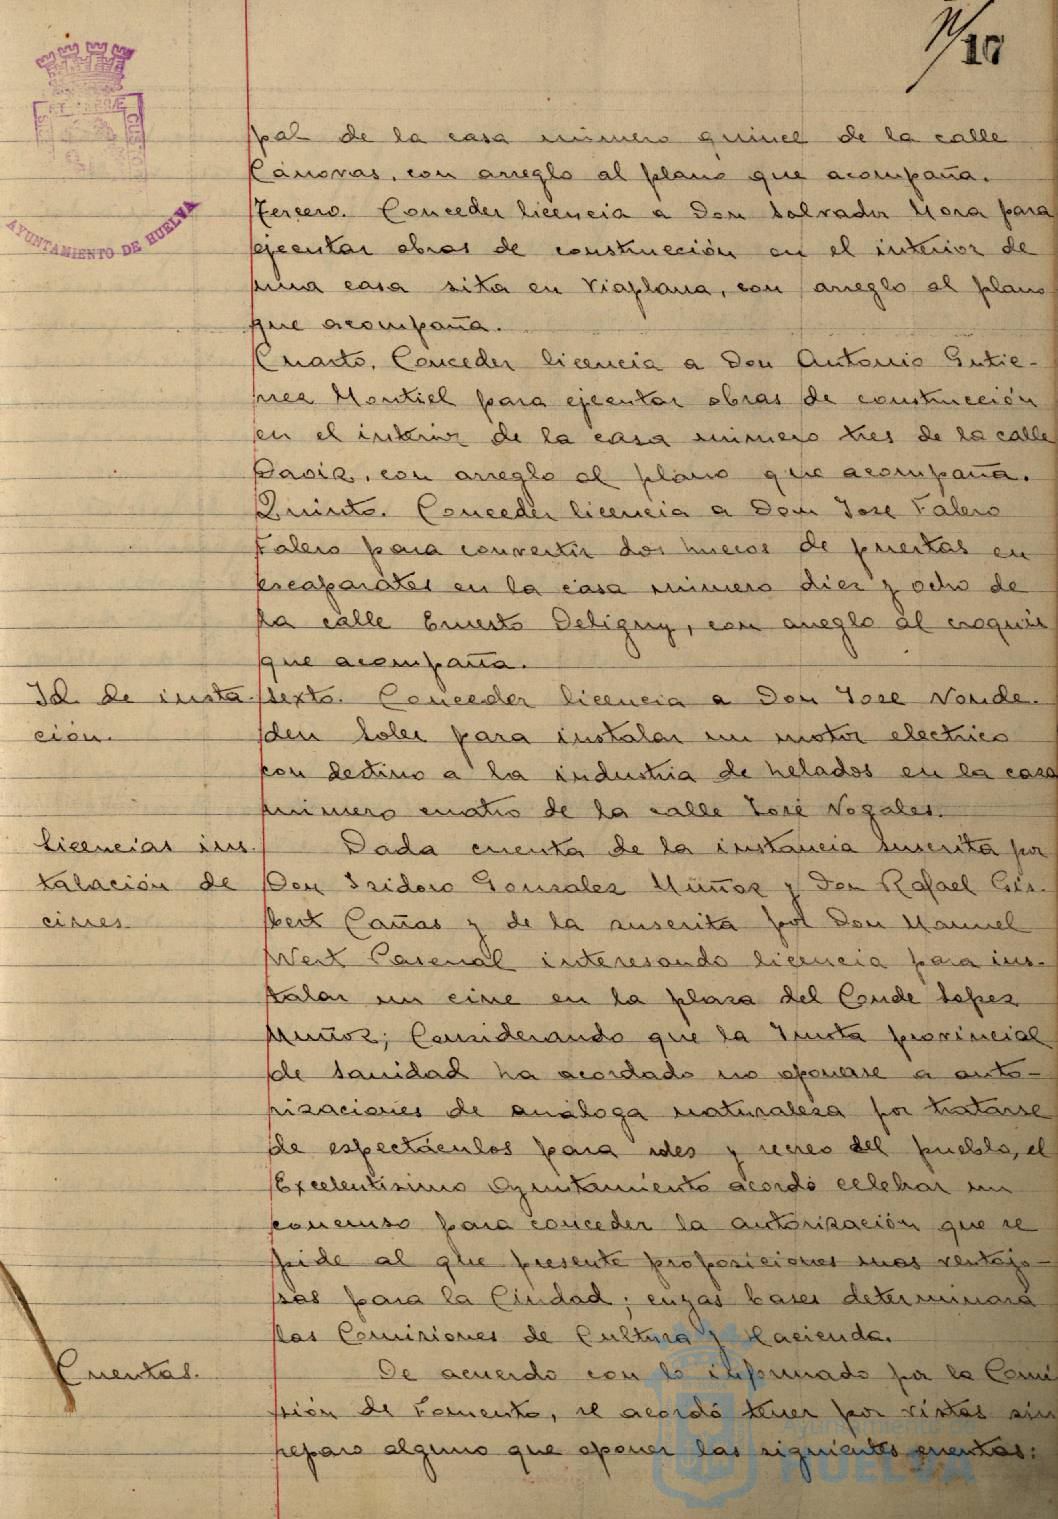 10
AYUNTAMIENTO DE HUELVA
pal de la casa número quince de la calle
Cánovas, con arreglo al plano que acompaña.
Tercero. Conceder licencia a Don Salvador Mora para
ejecutar obras de construcción en el interior de
una casa sita en Viaplana, con arreglo al plano
que acompaña.
Cuarto. Conceder licencia a Don Antonio Gutie-
rrez Montiel para ejecutar obras de construcción
en el interior de la casa número tres de la calle
con arreglo al plano que acompaña.
Quinto. Conceder licencia a Don Jose Falero
Falero para convertir dos huecos de puertas en
escaparates en la casa número diez y ocho de
la calle Ernesto Deligny, con arreglo al croquis
que acompaña.
Id. de insta-
ción.
Sexto. Conceder licencia a Don Jose
Soler para instalar un motor electrico
con destino a la industria de helados en la casa
número cuatro de la calle José Nogales.
Licencias ins-
talación de
cines.
Dada cuenta de la instancia suscrita por
Don Isidoro Gonzalez Muñoz y Don Rafael Gis-
bert Cañas y de la suscrita por Don Manuel
Wert interesando licencia para ins-
talar un cine en la plaza del Conde Lopez
Muñoz; Considerando que la Junta provincial
de Sanidad ha acordado no oponerse a auto-
rizaciones de análoga naturaleza por tratarse
de espectáculos para y recreo del pueblo, el
Excelentisimo Ayuntamiento acordó celebrar un
concurso para conceder la autorización que se
pide al que presente proposiciones mas ventajo-
sas para la Ciudad; cuyas bases determinará
las Comisiones de Cultura y Hacienda.
Cuentas.
De acuerdo con lo informado por la Comi
sión de Fomento, se acordó tener por vistas sin
reparo alguno que oponer las siguientes cuentas:
Ayuntamiento de
HUELVA